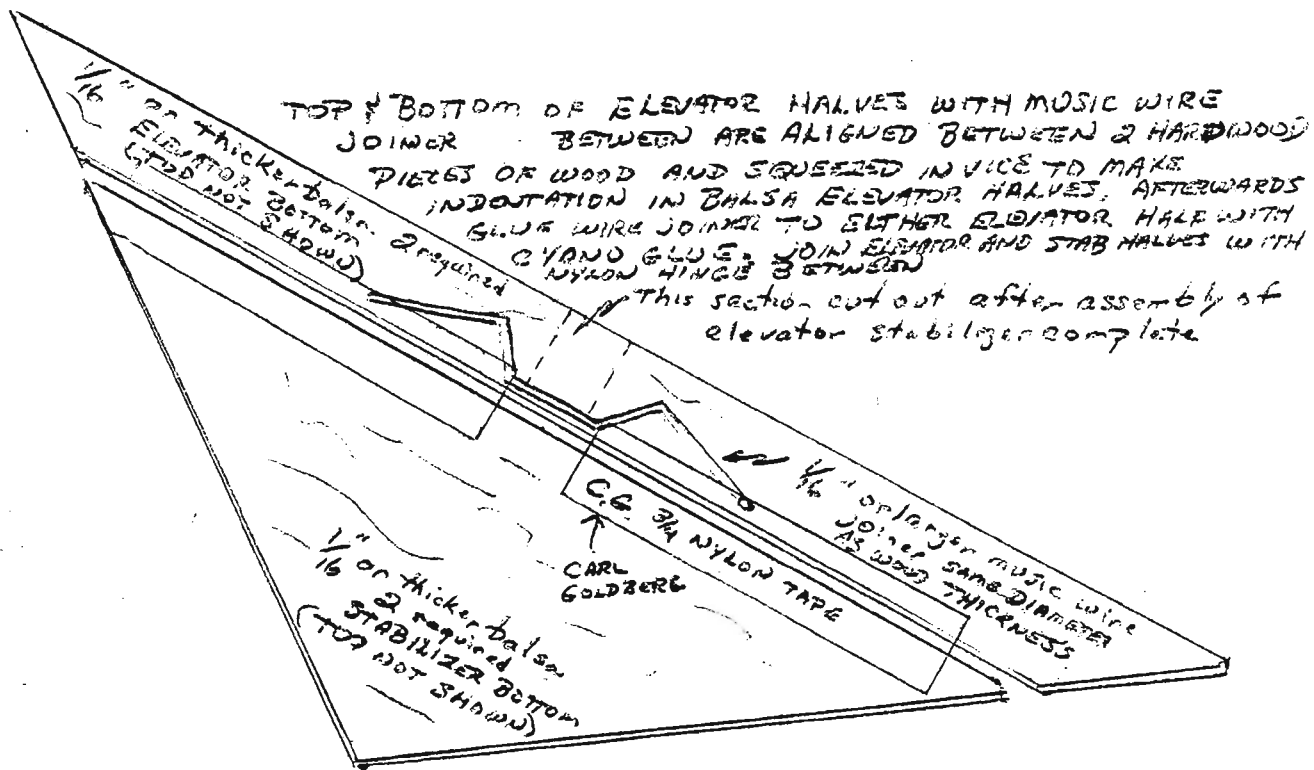 TOP & BOTTOM OF ELEVATOR HALVES WITH MUSIC WIRE
JOINER BETWEEN ARE ALIGNED BETWEEN 2 HARDWOOD
PIECES OF WOOD AND SQUEEZED IN VICE TO MAKE
INDENTATION IN BALSA ELEVATOR HALVES. AFTERWARDS
GLUE WIRE JOINER TO EITHER ELEVATOR HALF WITH
CYANO GLUE. JOIN ELEVATOR AND STAB HALVES WITH
NYLON HINGE BETWEEN
This section cut out after assembly of
elevator stabilizer complete
1/16" or thicker balsa. 2 required
ELEVATOR BOTTOM
(TOP NOT SHOWN)
1/16" or larger music wire
Joiner SAME DIAMETER
AS WOOD THICKNESS
C.G. 3/4 NYLON TAPE
CARL
GOLDBERG
1/16" or thicker balsa
2 required
STABILIZER BOTTOM
(TOP NOT SHOWN)